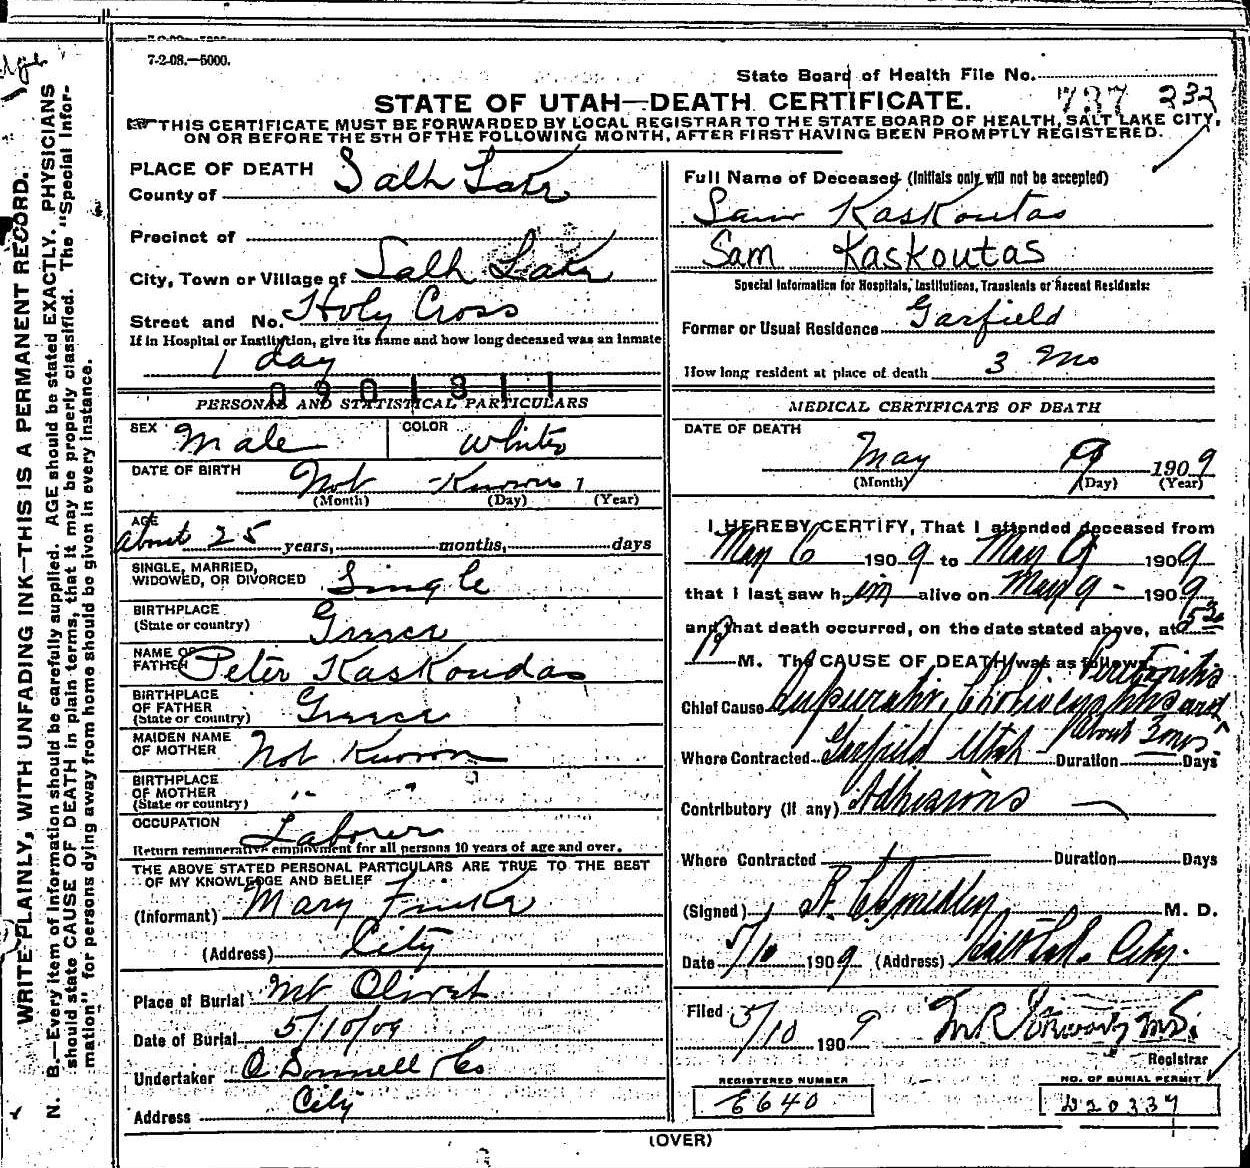 7-2-08.—5000.
State Board of Health File No.
STATE OF UTAH—DEATH CERTIFICATE.
737 232
THIS CERTIFICATE MUST BE FORWARDED BY LOCAL REGISTRAR TO THE STATE BOARD OF HEALTH, SALT LAKE CITY,
ON OR BEFORE THE 5TH OF THE FOLLOWING MONTH, AFTER FIRST HAVING BEEN PROMPTLY REGISTERED.
WRITE PLAINLY, WITH UNFADING INK—THIS IS A PERMANENT RECORD.
N. B.—Every item of information should be carefully supplied. AGE should be stated EXACTLY. PHYSICIANS
should state CAUSE OF DEATH in plain terms, that it may be properly classified. The "Special Infor-
mation" for persons dying away from home should be given in every instance.
PLACE OF DEATH
County of Salt Lake
Precinct of
City, Town or Village of Salt Lake
Street and No. Holy Cross
If in Hospital or Institution, give its name and how long deceased was an inmate
1 day
0901811
PERSONAL AND STATISTICAL PARTICULARS
SEX Male COLOR White
DATE OF BIRTH Not Known
(Month) (Day) (Year)
AGE
about 25 years, months, days
SINGLE, MARRIED,
WIDOWED, OR DIVORCED Single
BIRTHPLACE
(State or country) Greece
NAME OF
FATHER Peter Kaskoudas
BIRTHPLACE
OF FATHER
(State or country) Greece
MAIDEN NAME
OF MOTHER Not Known
BIRTHPLACE
OF MOTHER
(State or country) " "
OCCUPATION Laborer
Return remunerative employment for all persons 10 years of age and over.
THE ABOVE STATED PERSONAL PARTICULARS ARE TRUE TO THE BEST
OF MY KNOWLEDGE AND BELIEF
(Informant) Mary
(Address) City
Place of Burial Mt Olivet
Date of Burial 5/10/09
Undertaker O Donnell & Co
Address City
Full Name of Deceased (Initials only will not be accepted)
Sam Kaskoutas
Sam Kaskoutas
Special Information for Hospitals, Institutions, Transients or Recent Residents:
Former or Usual Residence Garfield
How long resident at place of death 3 Mo
MEDICAL CERTIFICATE OF DEATH
DATE OF DEATH
May 9 1909
(Month) (Day) (Year)
I HEREBY CERTIFY, That I attended deceased from
May 6 1909 to May 9 1909
that I last saw him alive on May 9 - 1909
and that death occurred, on the date stated above, at 5 30
P M. The CAUSE OF DEATH was as follows:
Peritonitis
Chief Cause and
About 3 mos
Where Contracted Garfield Utah Duration Days
Contributory (if any) Adhesions
Where Contracted Duration Days
(Signed) M. D.
Date 5/10 1909 (Address) Salt Lake City.
Filed 5/10 1909
Registrar
REGISTERED NUMBER
E640
NO. OF BURIAL PERMIT
D20337
(OVER)